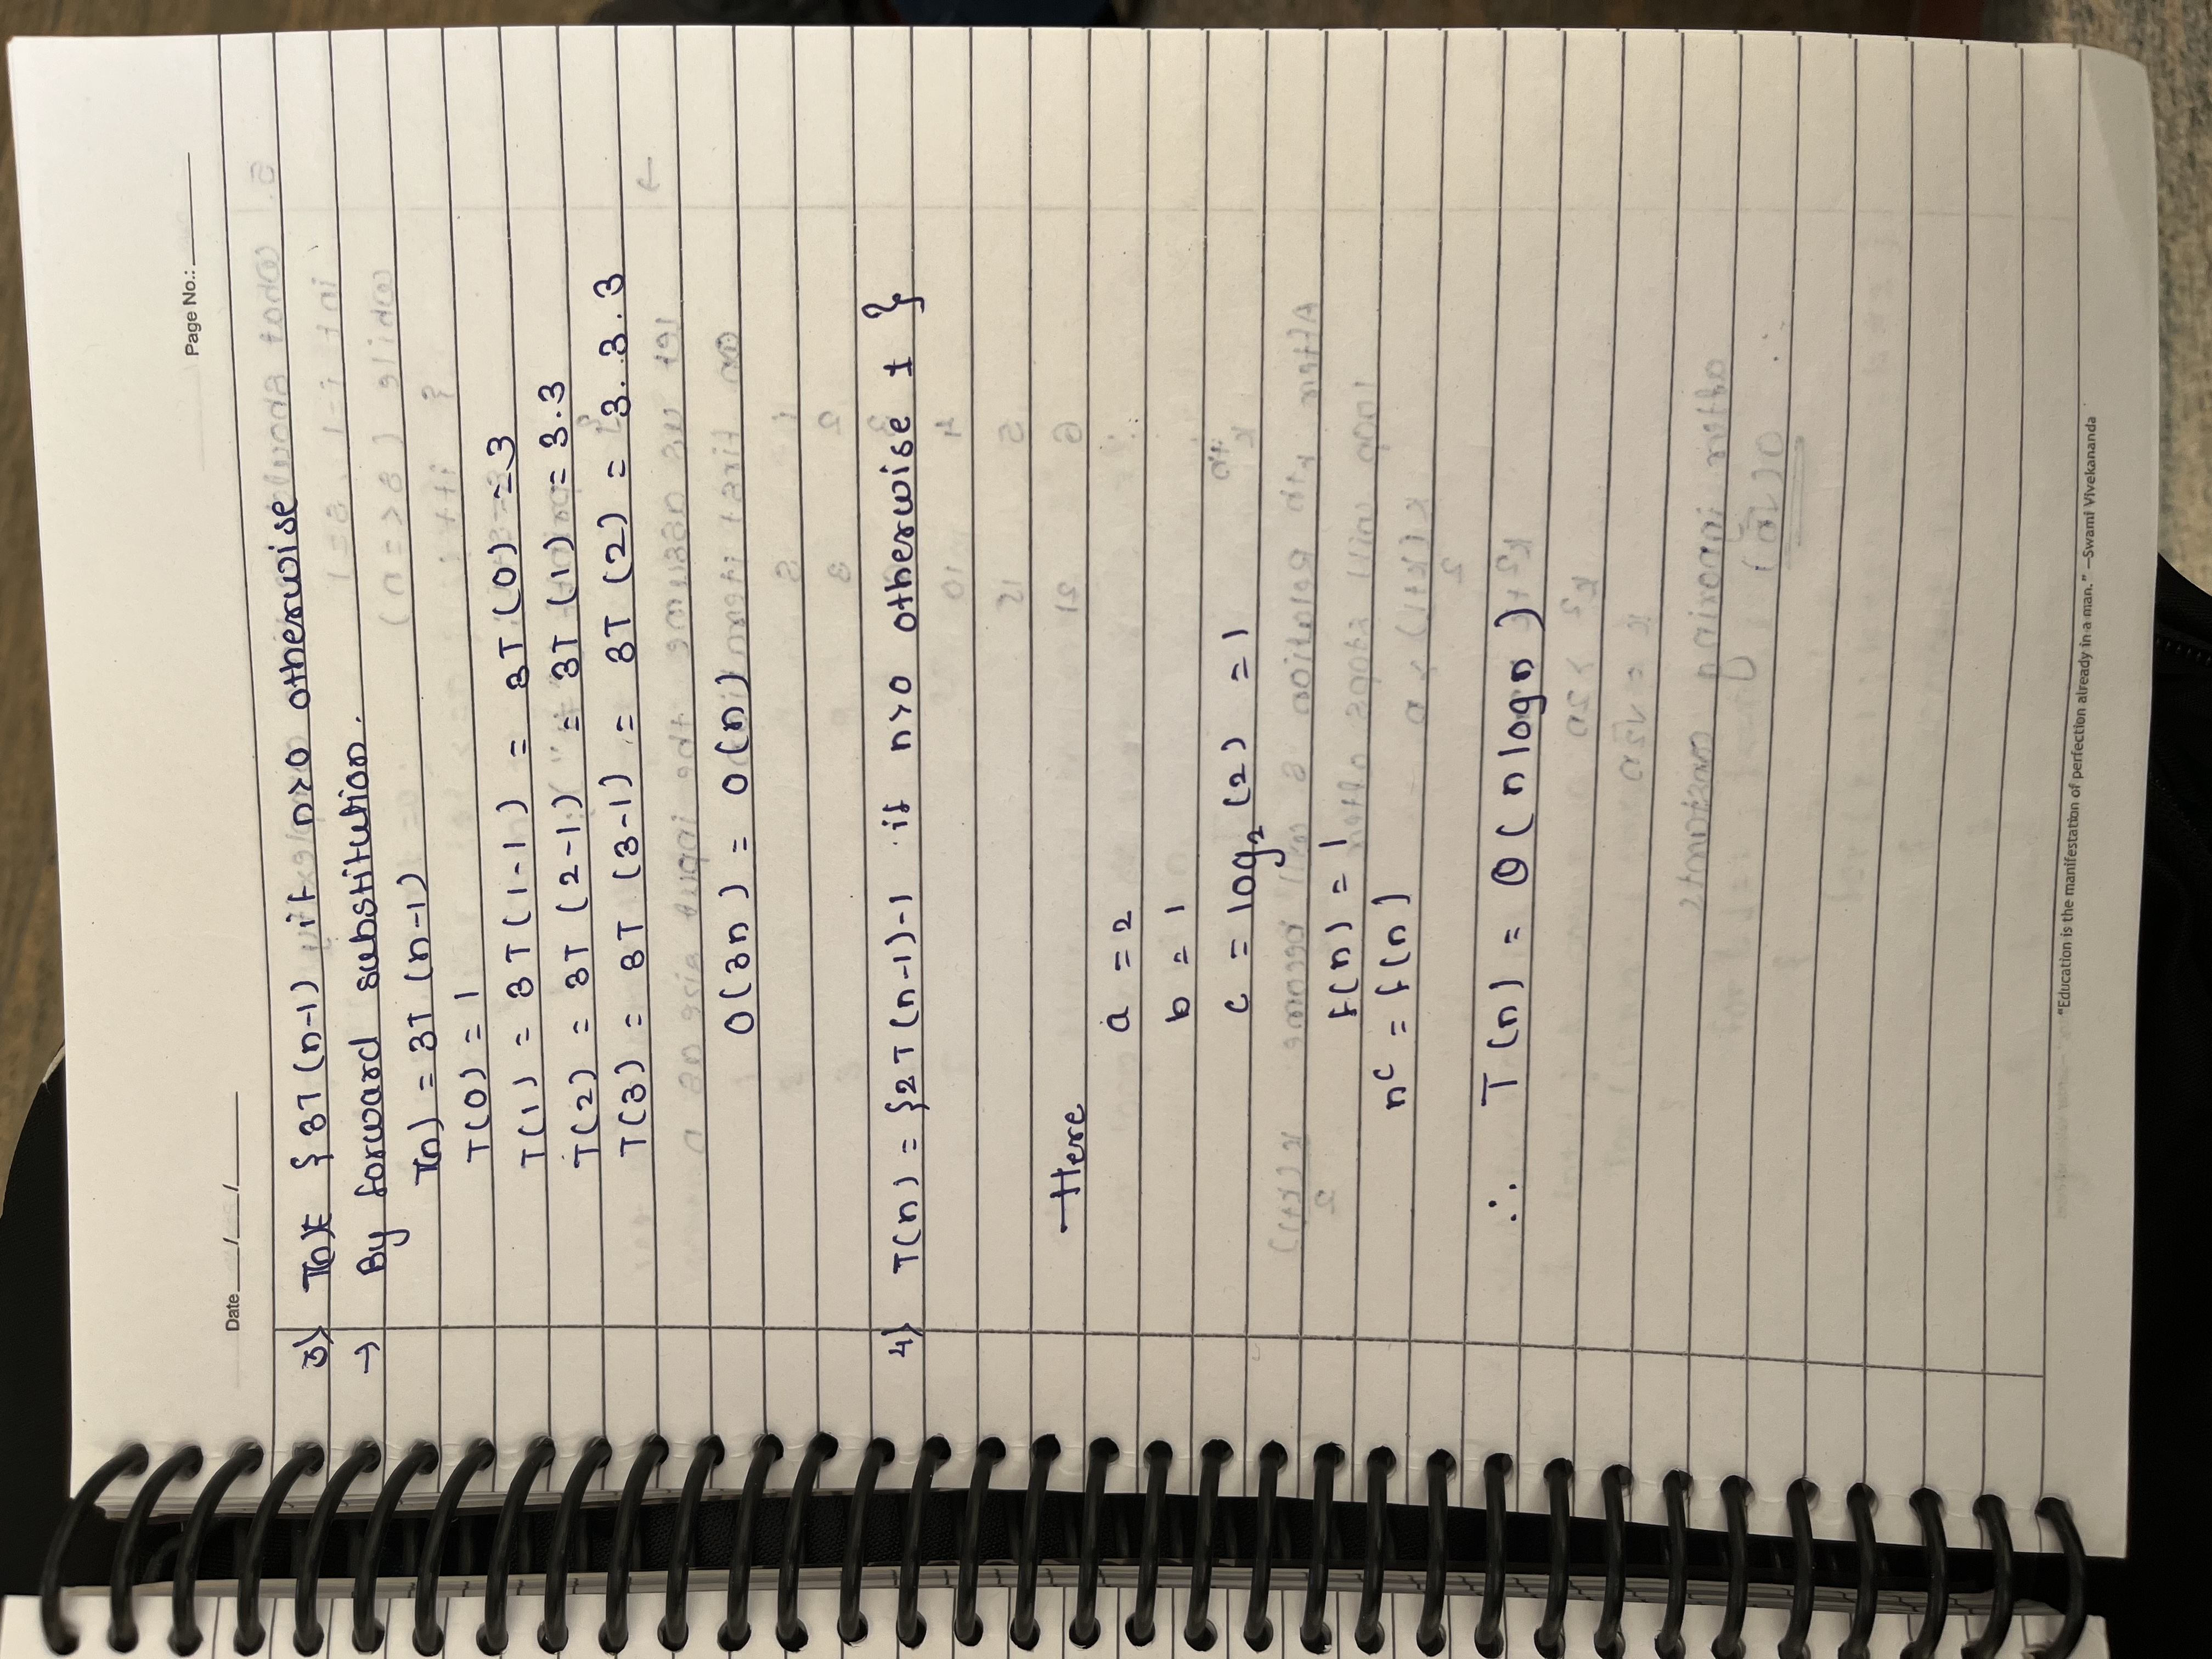 Page No.:
Date / /
3) T(n) = { 3T (n-1) if n>0 otherwise
→ By forward substitution.
T(n) = 3T (n-1)
T(0) = 1
T(1) = 3T(1-1) = 3T(0) = 3
T(2) = 3T (2-1) = 3T (1) = 3.3
T(3) = 3T (3-1) = 3T (2) = 3.3.3
O(3n) = O(n)
4) T(n) = {2T(n-1)-1 if n>0 otherwise 1 }
Here
a = 2
b = 1
c = log₂ (2) = 1
f(n) = 1
nᶜ = f(n)
∴ T(n) = Θ(n logn)
"Education is the manifestation of perfection already in a man." —Swami Vivekananda